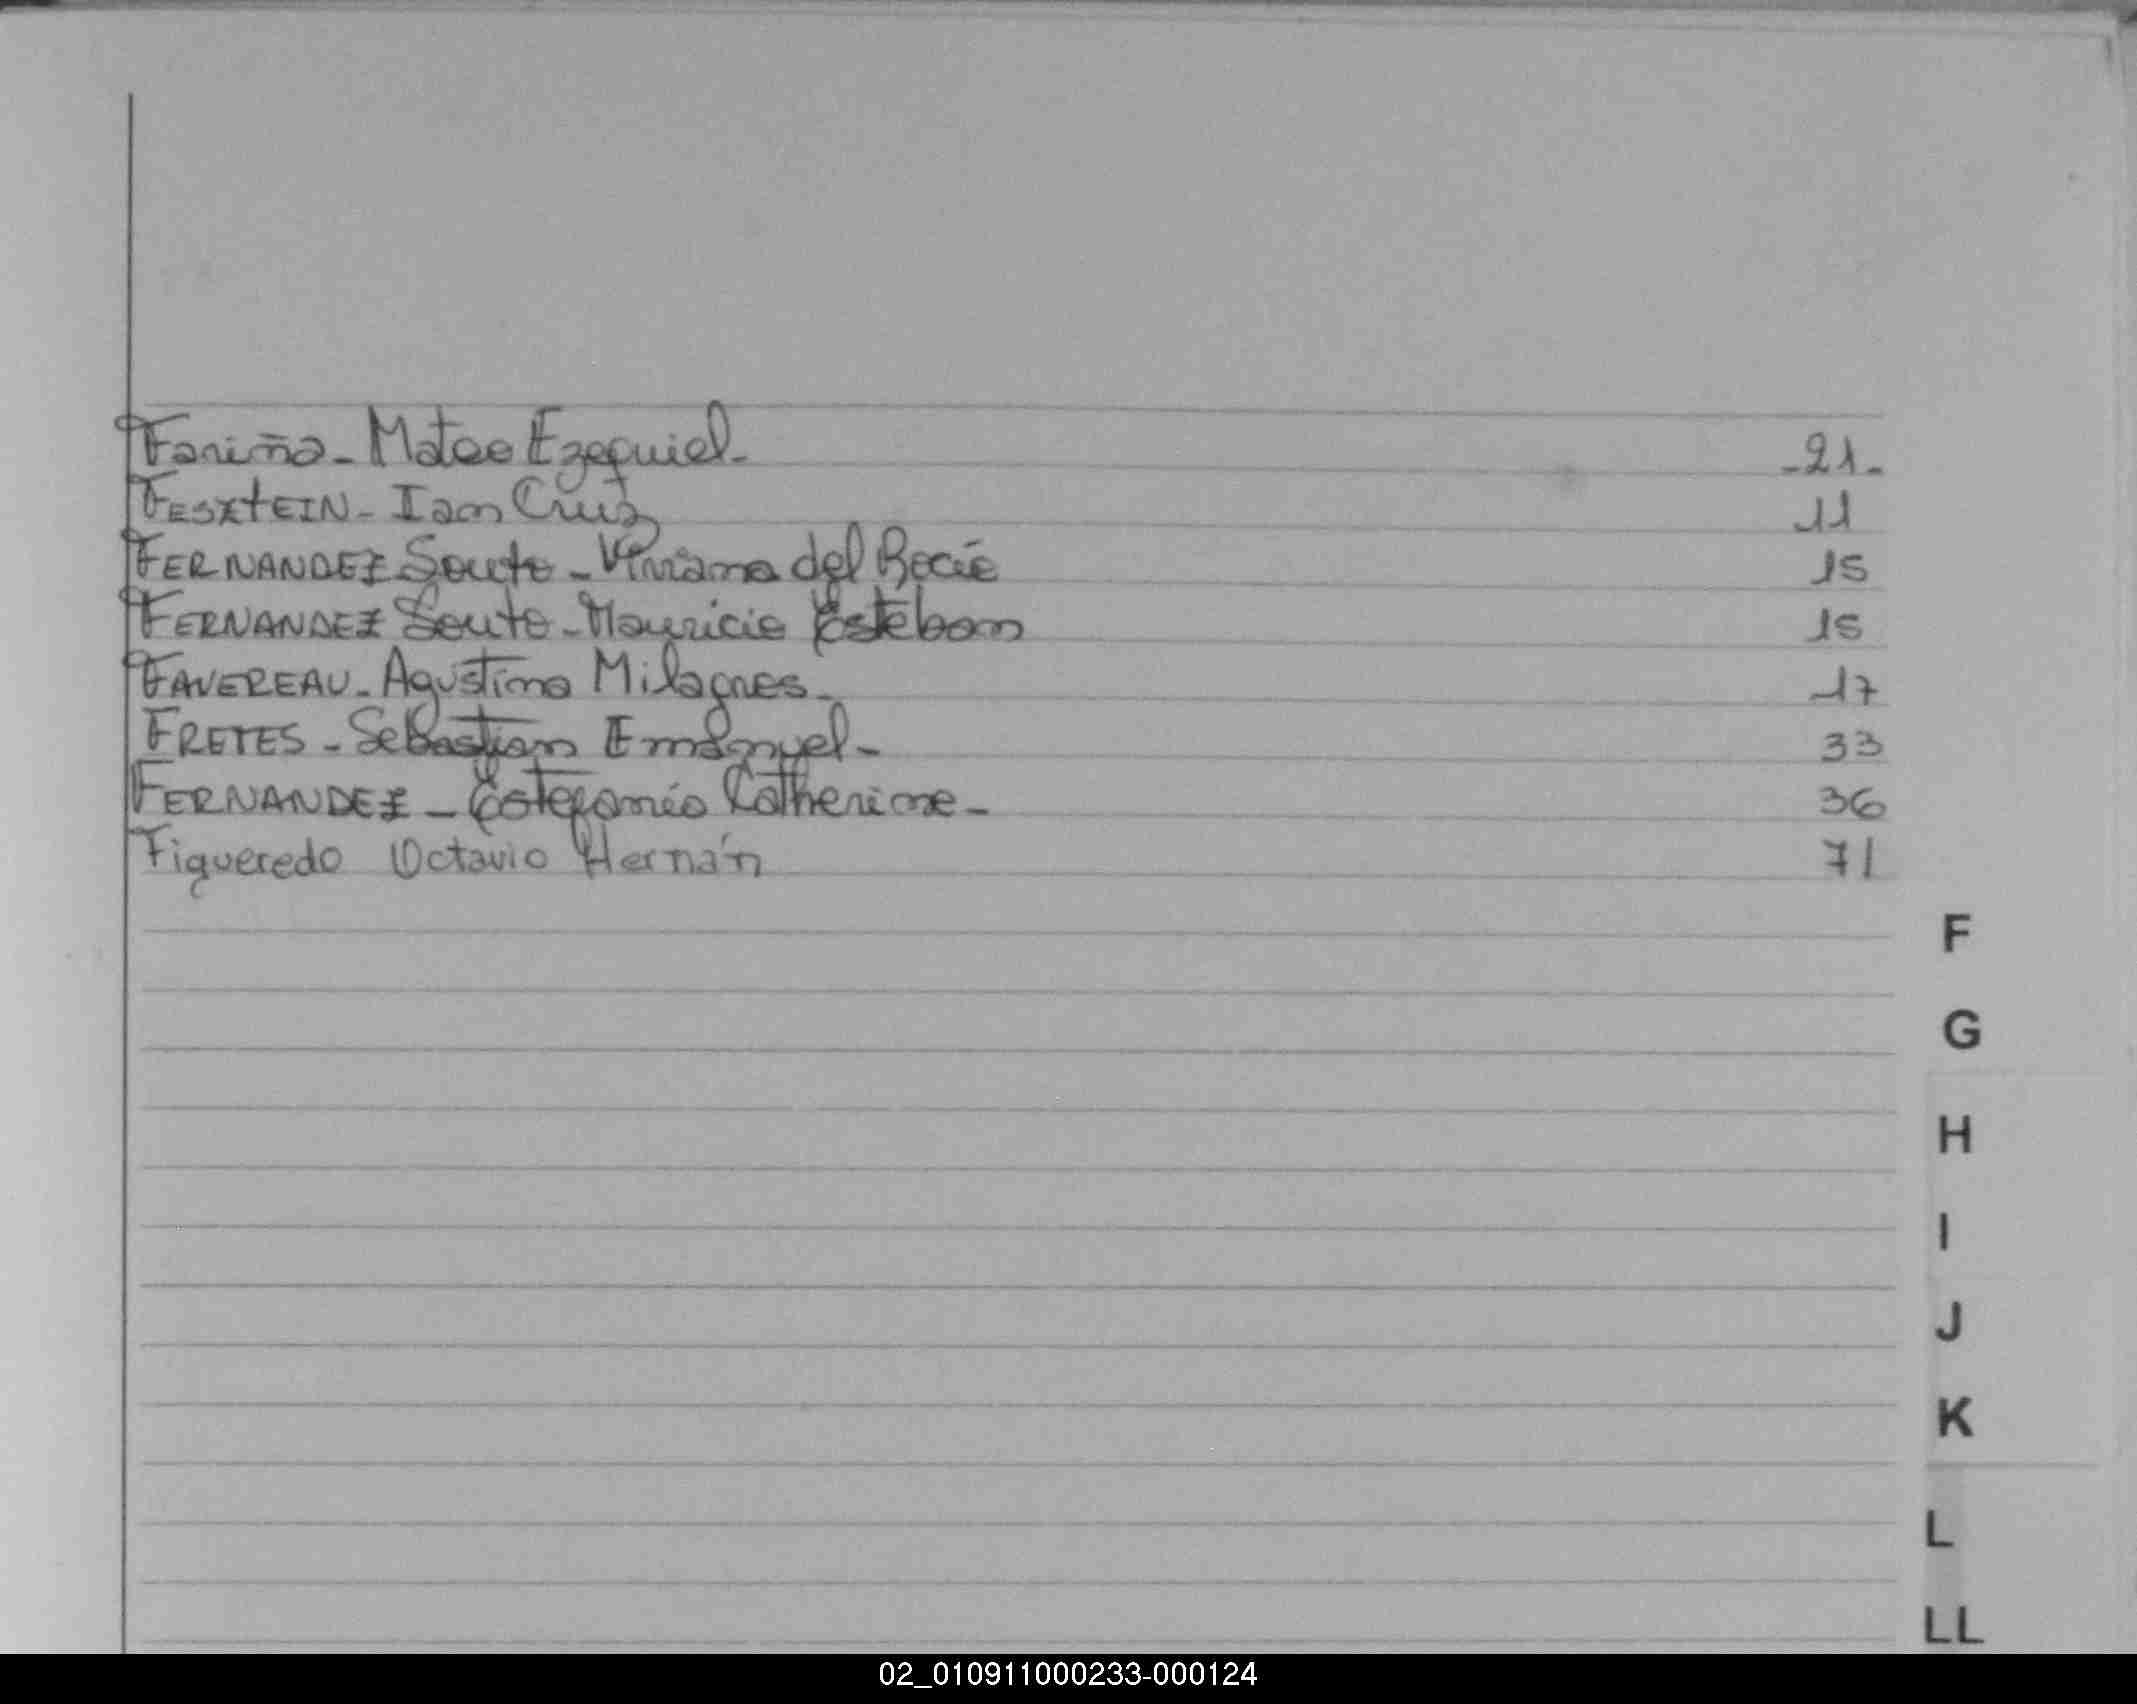 Fariña - Mateo Ezequiel - -21-
FESZtEIN - Ian Cruz 11
FERNANDEZ Souto - Viviana del Rocío 15
FERNANDEZ Souto - Mauricio Esteban 15
FAVEREAU - Agustina Milagros - 17
FRETES - Sebastian Emanuel - 33
FERNANDEZ - Estefanía Catherine - 36
Figueredo Octavio Hernán 71
F
G
H
I
J
K
L
LL
02_010911000233-000124